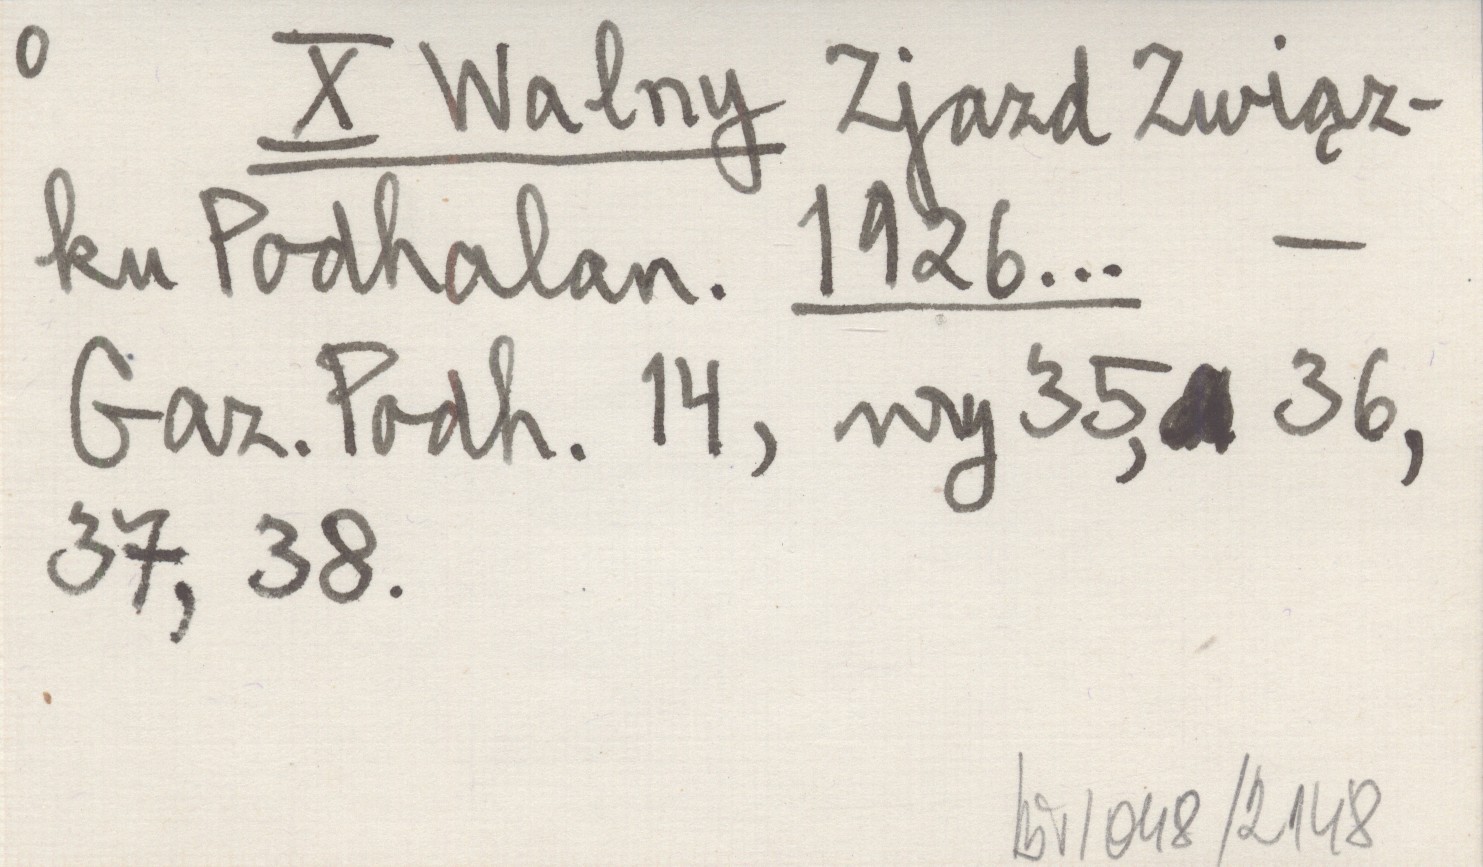 o X Walny Zjazd Związ-
ku Podhalan. 1926... —
Gaz. Podh. 14, nry 35, 36,
37, 38.
/048/2148